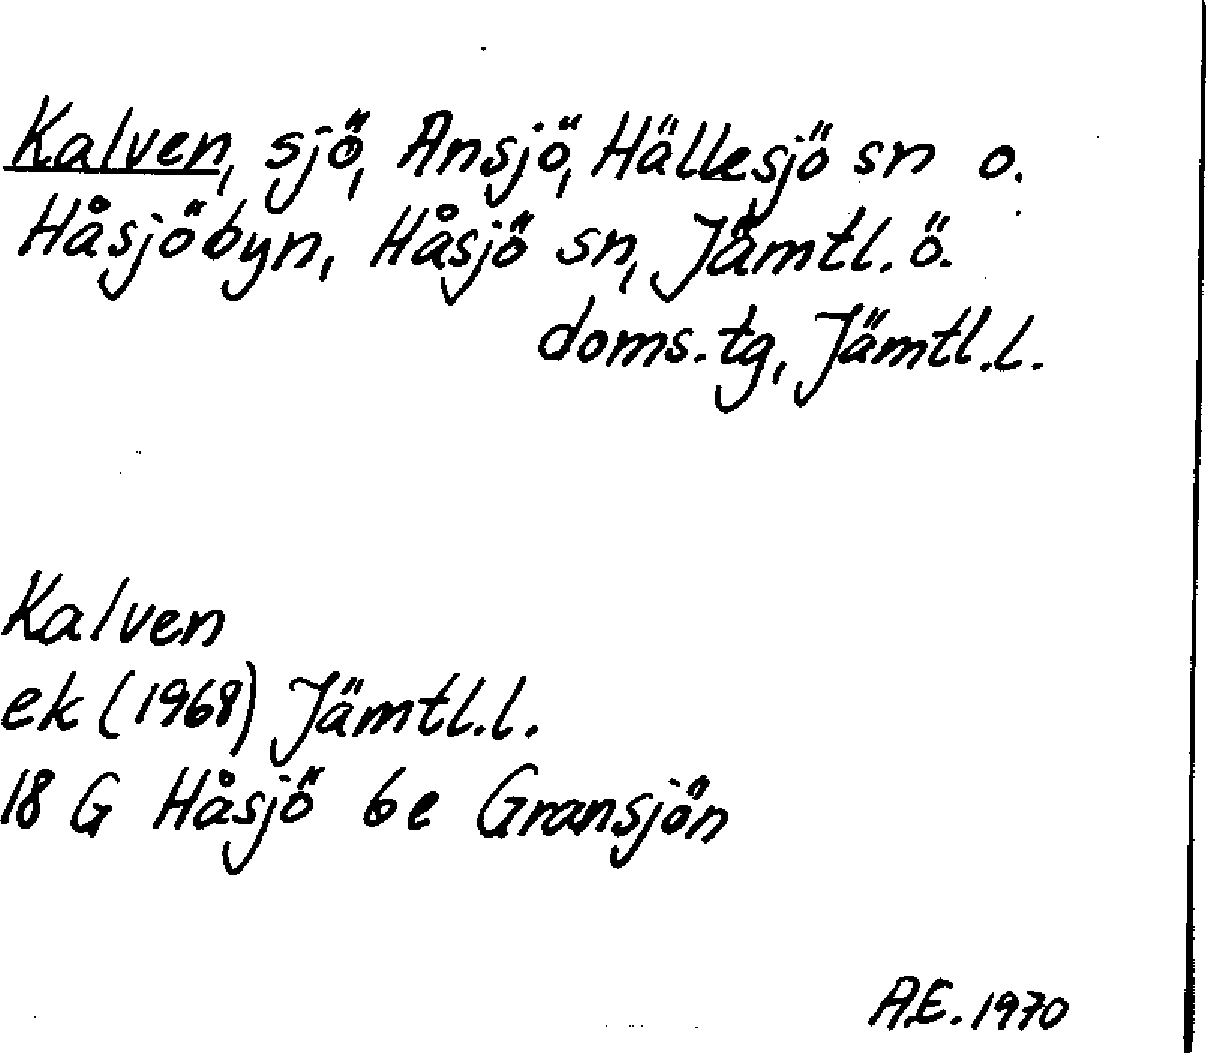 Kalven, sjö, Ansjö, Hällesjö sn o.
Håsjöbyn, Håsjö sn, Jämtl. ö.
doms. tg, Jämtl. l.
Kalven
ek (1968) Jämtl. l.
18 G Håsjö 6e Gransjön
A.E. 1970